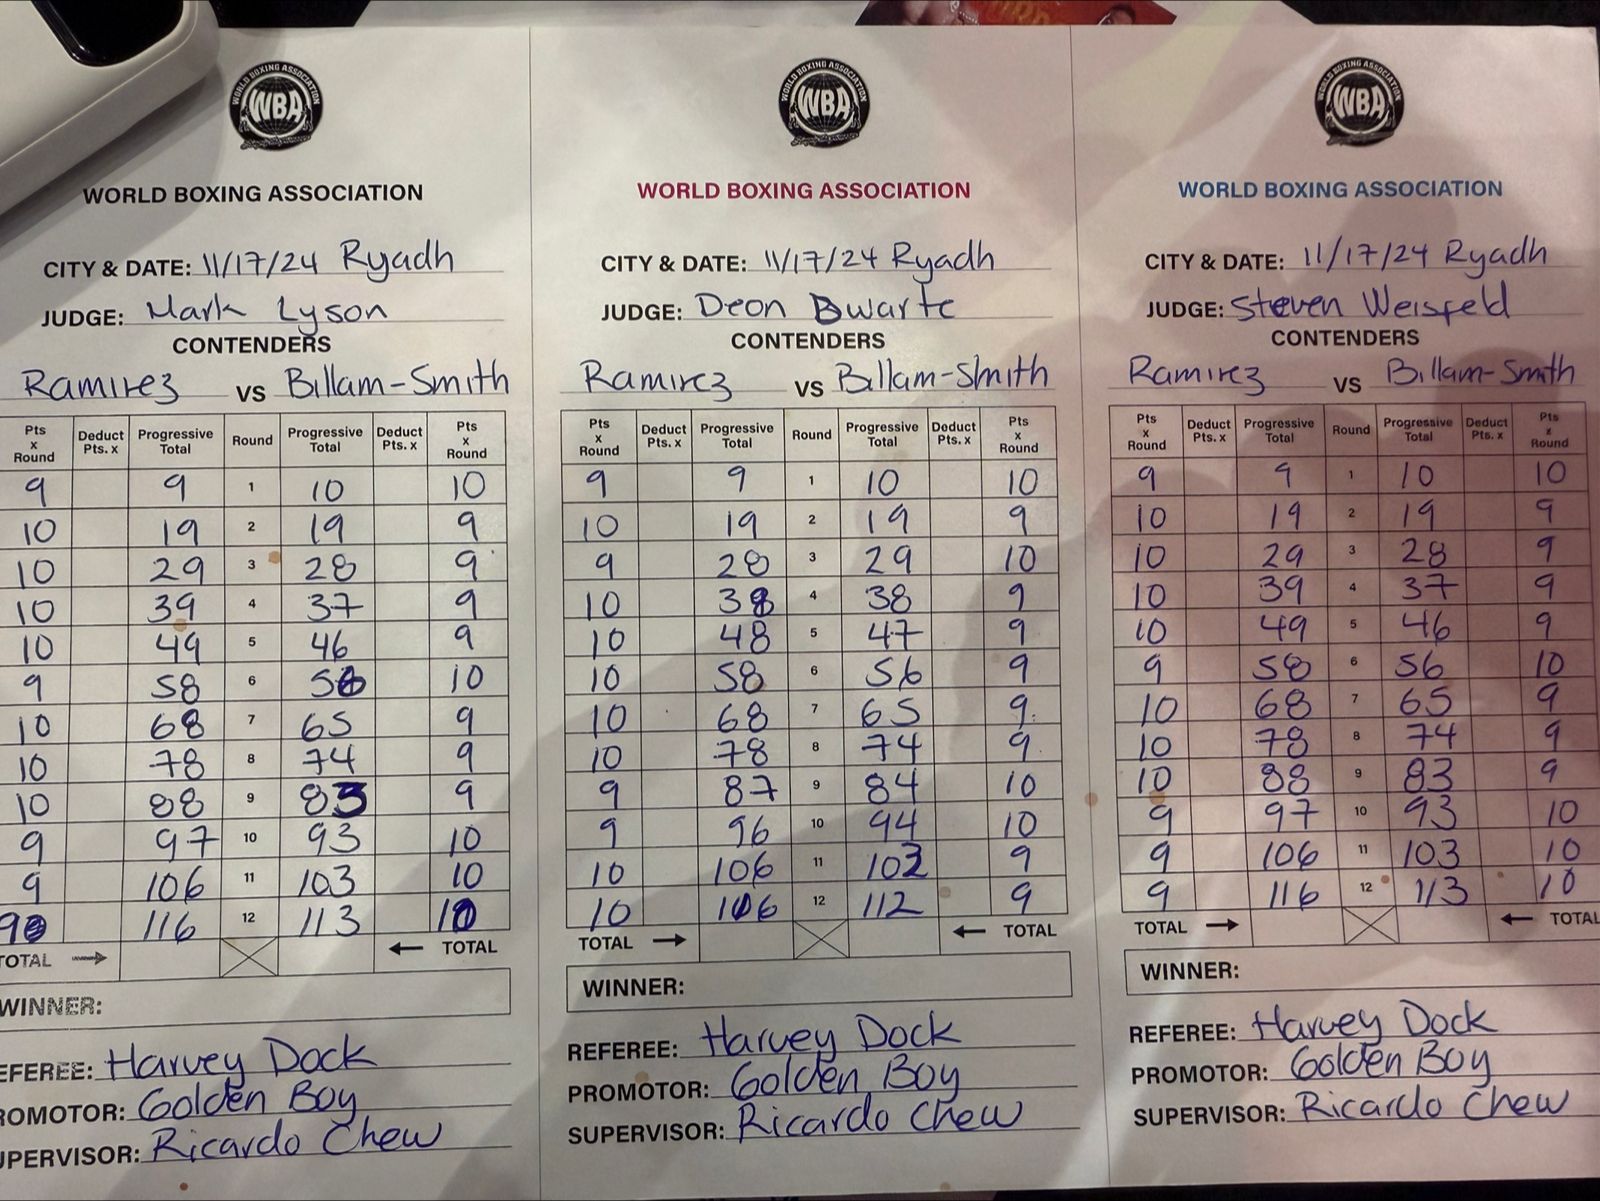 WORLD BOXING ASSOCIATION
WBA
WORLD BOXING ASSOCIATION
CITY & DATE: 11/17/24 Ryadh
JUDGE: Mark Lyson
CONTENDERS
Ramirez VS Billam-Smith
Pts x Round Deduct Pts. x Progressive Total Round Progressive Total Deduct Pts. x Pts x Round
9 9 1 10 10
10 19 2 19 9
10 29 3 28 9
10 39 4 37 9
10 49 5 46 9
9 58 6 56 10
10 68 7 65 9
10 78 8 74 9
10 88 9 83 9
9 97 10 93 10
9 106 11 103 10
116 12 113 10
TOTAL → ← TOTAL
WINNER:
EFEREE: Harvey Dock
ROMOTOR: Golden Boy
UPERVISOR: Ricardo Chew
WORLD BOXING ASSOCIATION
WBA
WORLD BOXING ASSOCIATION
CITY & DATE: 11/17/24 Ryadh
JUDGE: Deon Dwarte
CONTENDERS
Ramirez VS Billam-Smith
Pts x Round Deduct Pts. x Progressive Total Round Progressive Total Deduct Pts. x Pts x Round
9 9 1 10 10
10 19 2 19 9
9 28 3 29 10
10 38 4 38 9
10 48 5 47 9
10 58 6 56 9
10 68 7 65 9
10 78 8 74 9
9 87 9 84 10
9 96 10 94 10
10 106 11 103 9
10 116 12 112 9
TOTAL → ← TOTAL
WINNER:
REFEREE: Harvey Dock
PROMOTOR: Golden Boy
SUPERVISOR: Ricardo Chew
WORLD BOXING ASSOCIATION
WBA
WORLD BOXING ASSOCIATION
CITY & DATE: 11/17/24 Ryadh
JUDGE: Steven Weisfeld
CONTENDERS
Ramirez VS Billam-Smith
Pts x Round Deduct Pts. x Progressive Total Round Progressive Total Deduct Pts. x Pts x Round
9 9 1 10 10
10 19 2 19 9
10 29 3 28 9
10 39 4 37 9
10 49 5 46 9
9 58 6 56 10
10 68 7 65 9
10 78 8 74 9
10 88 9 83 9
9 97 10 93 10
9 106 11 103 10
9 116 12 113 10
TOTAL → ← TOTAL
WINNER:
REFEREE: Harvey Dock
PROMOTOR: Golden Boy
SUPERVISOR: Ricardo Chew